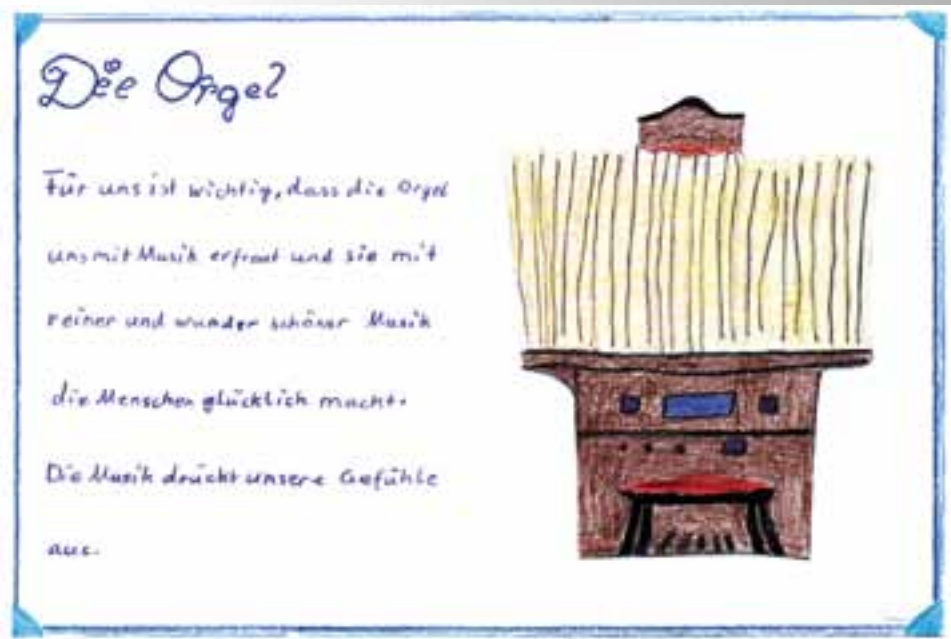 Die Orgel
Für uns ist wichtig, dass die Orgel
uns mit Musik erfreut und sie mit
reiner und wunder schöner Musik
die Menschen glücklich macht.
Die Musik drückt unsere Gefühle
aus.